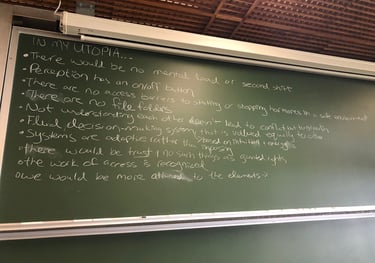 IN MY UTOPIA...
• There would be no mental load or second shift
• Perception has an on/off button
• There are no access barriers to starting or stopping hormones in a safe environment
• There are no file folders
• Not understanding each other doesn't lead to conflict
• Fluid decision-making system that is valued equally to other
based on intuition + energy
• Systems are adaptive rather than imposing
• There would be trust, no such things as rights
• the work of access is recognized
• we would be more attuned to the elements